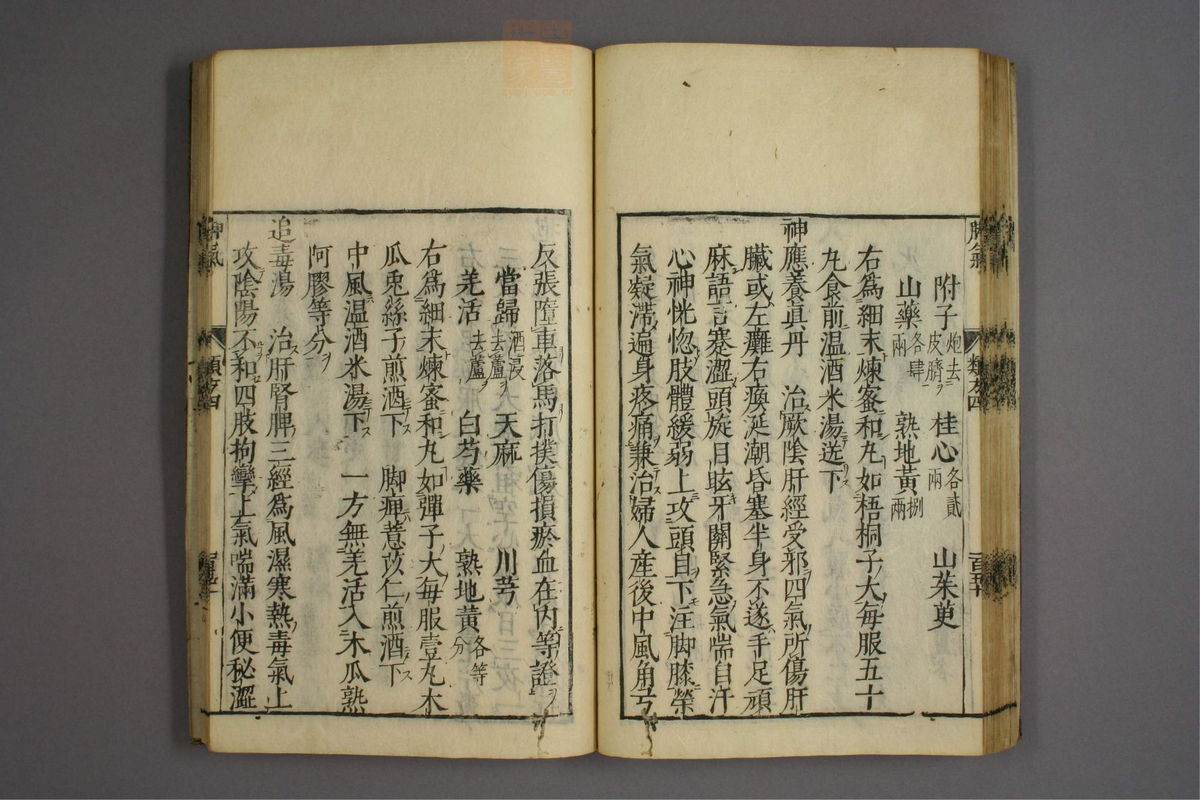 附子炮去皮臍 桂心各貳兩 山茱萸
山藥各肆兩 熟地黃捌兩
右爲細末煉蜜和丸如梧桐子大每服五十
丸食前温酒米湯送下
神應養真丹 治厥陰肝經受邪四氣所傷肝
臟或左癱右瘓涎潮昏塞半身不遂手足頑
麻語言蹇澀頭旋目眩牙關緊急氣喘自汗
心神恍惚肢體緩弱上攻頭目下注脚膝榮
氣凝滯遍身疼痛兼治婦人産後中風角弓
反張墮車落馬打撲傷損瘀血在内等證
當歸酒浸去蘆 天麻 川芎
羌活去蘆 白芍藥 熟地黃各等分
右爲細末煉蜜和丸如彈子大每服壹丸木
瓜兎絲子煎酒下 脚痺薏苡仁煎酒下
中風温酒米湯下 一方無羌活入木瓜熟
阿膠等分
追毒湯 治肝腎脾三經爲風濕寒熱毒氣上
攻陰陽不和四肢拘攣上氣喘滿小便秘澀